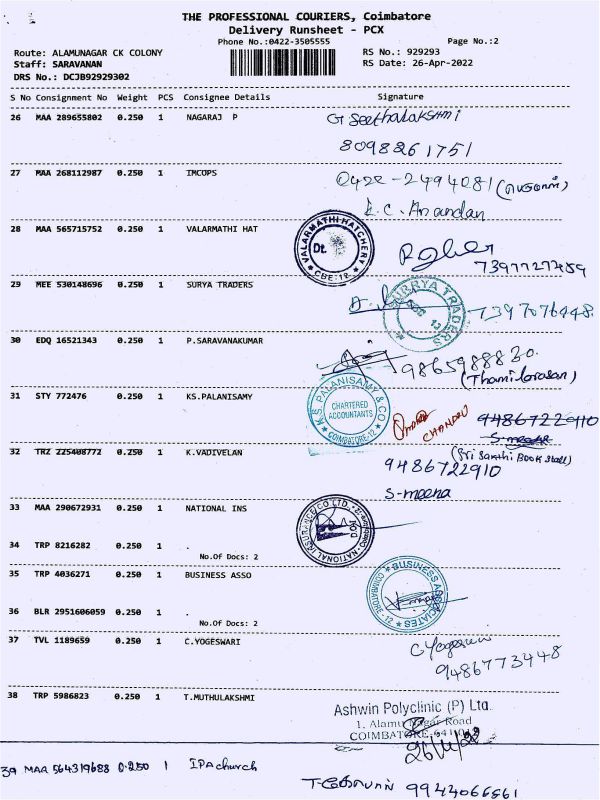 THE PROFESSIONAL COURIERS, Coimbatore
Delivery Runsheet - PCX
Phone No.:0422-3505555
Page No.:2
Route: ALAMUNAGAR CK COLONY
RS No.: 929293
Staff: SARAVANAN
RS Date: 26-Apr-2022
DRS No.: DCJB92929302
S No Consignment No Weight PCS Consignee Details Signature
26 MAA 289655802 0.250 1 NAGARAJ P
G Seethalakshmi
8098261751
27 MAA 268112987 0.250 1 IMCOPS
0422-2494081
K.C. Anandan
28 MAA 565715752 0.250 1 VALARMATHI HAT
VALARMATHI HATCHERY
Dt.
CBE-12
29 MEE 530148696 0.250 1 SURYA TRADERS
SURRYA TRADERS
7397076448
30 EDQ 16521343 0.250 1 P.SARAVANAKUMAR
9865988830.
(Thamilarasan)
31 STY 772476 0.250 1 KS.PALANISAMY
K.S. PALANISAMY & CO
CHARTERED
ACCOUNTANTS
COIMBATORE-12
CHANDRU
9486722910
S-meena
32 TRZ 225408772 0.250 1 K.VADIVELAN
(Sri Sakthi Book Stall)
9486722910
S-meena
33 MAA 290672931 0.250 1 NATIONAL INS
NATIONAL INSURANCE CO LTD.
34 TRP 8216282 0.250 1 .
No.Of Docs: 2
35 TRP 4036271 0.250 1 BUSINESS ASSO
BUSINESS ASSOCIATES
COIMBATORE-12
36 BLR 2951606059 0.250 1 .
No.Of Docs: 2
37 TVL 1189659 0.250 1 C.YOGESWARI
C Yogeswari
9486773448
38 TRP 5986823 0.250 1 T.MUTHULAKSHMI
Ashwin Polyclinic (P) Ltd.
1. Alamu Nagar Road
COIMBATORE-641 012
39 MAA 564319688 0.250 1 IPA church
9944066561